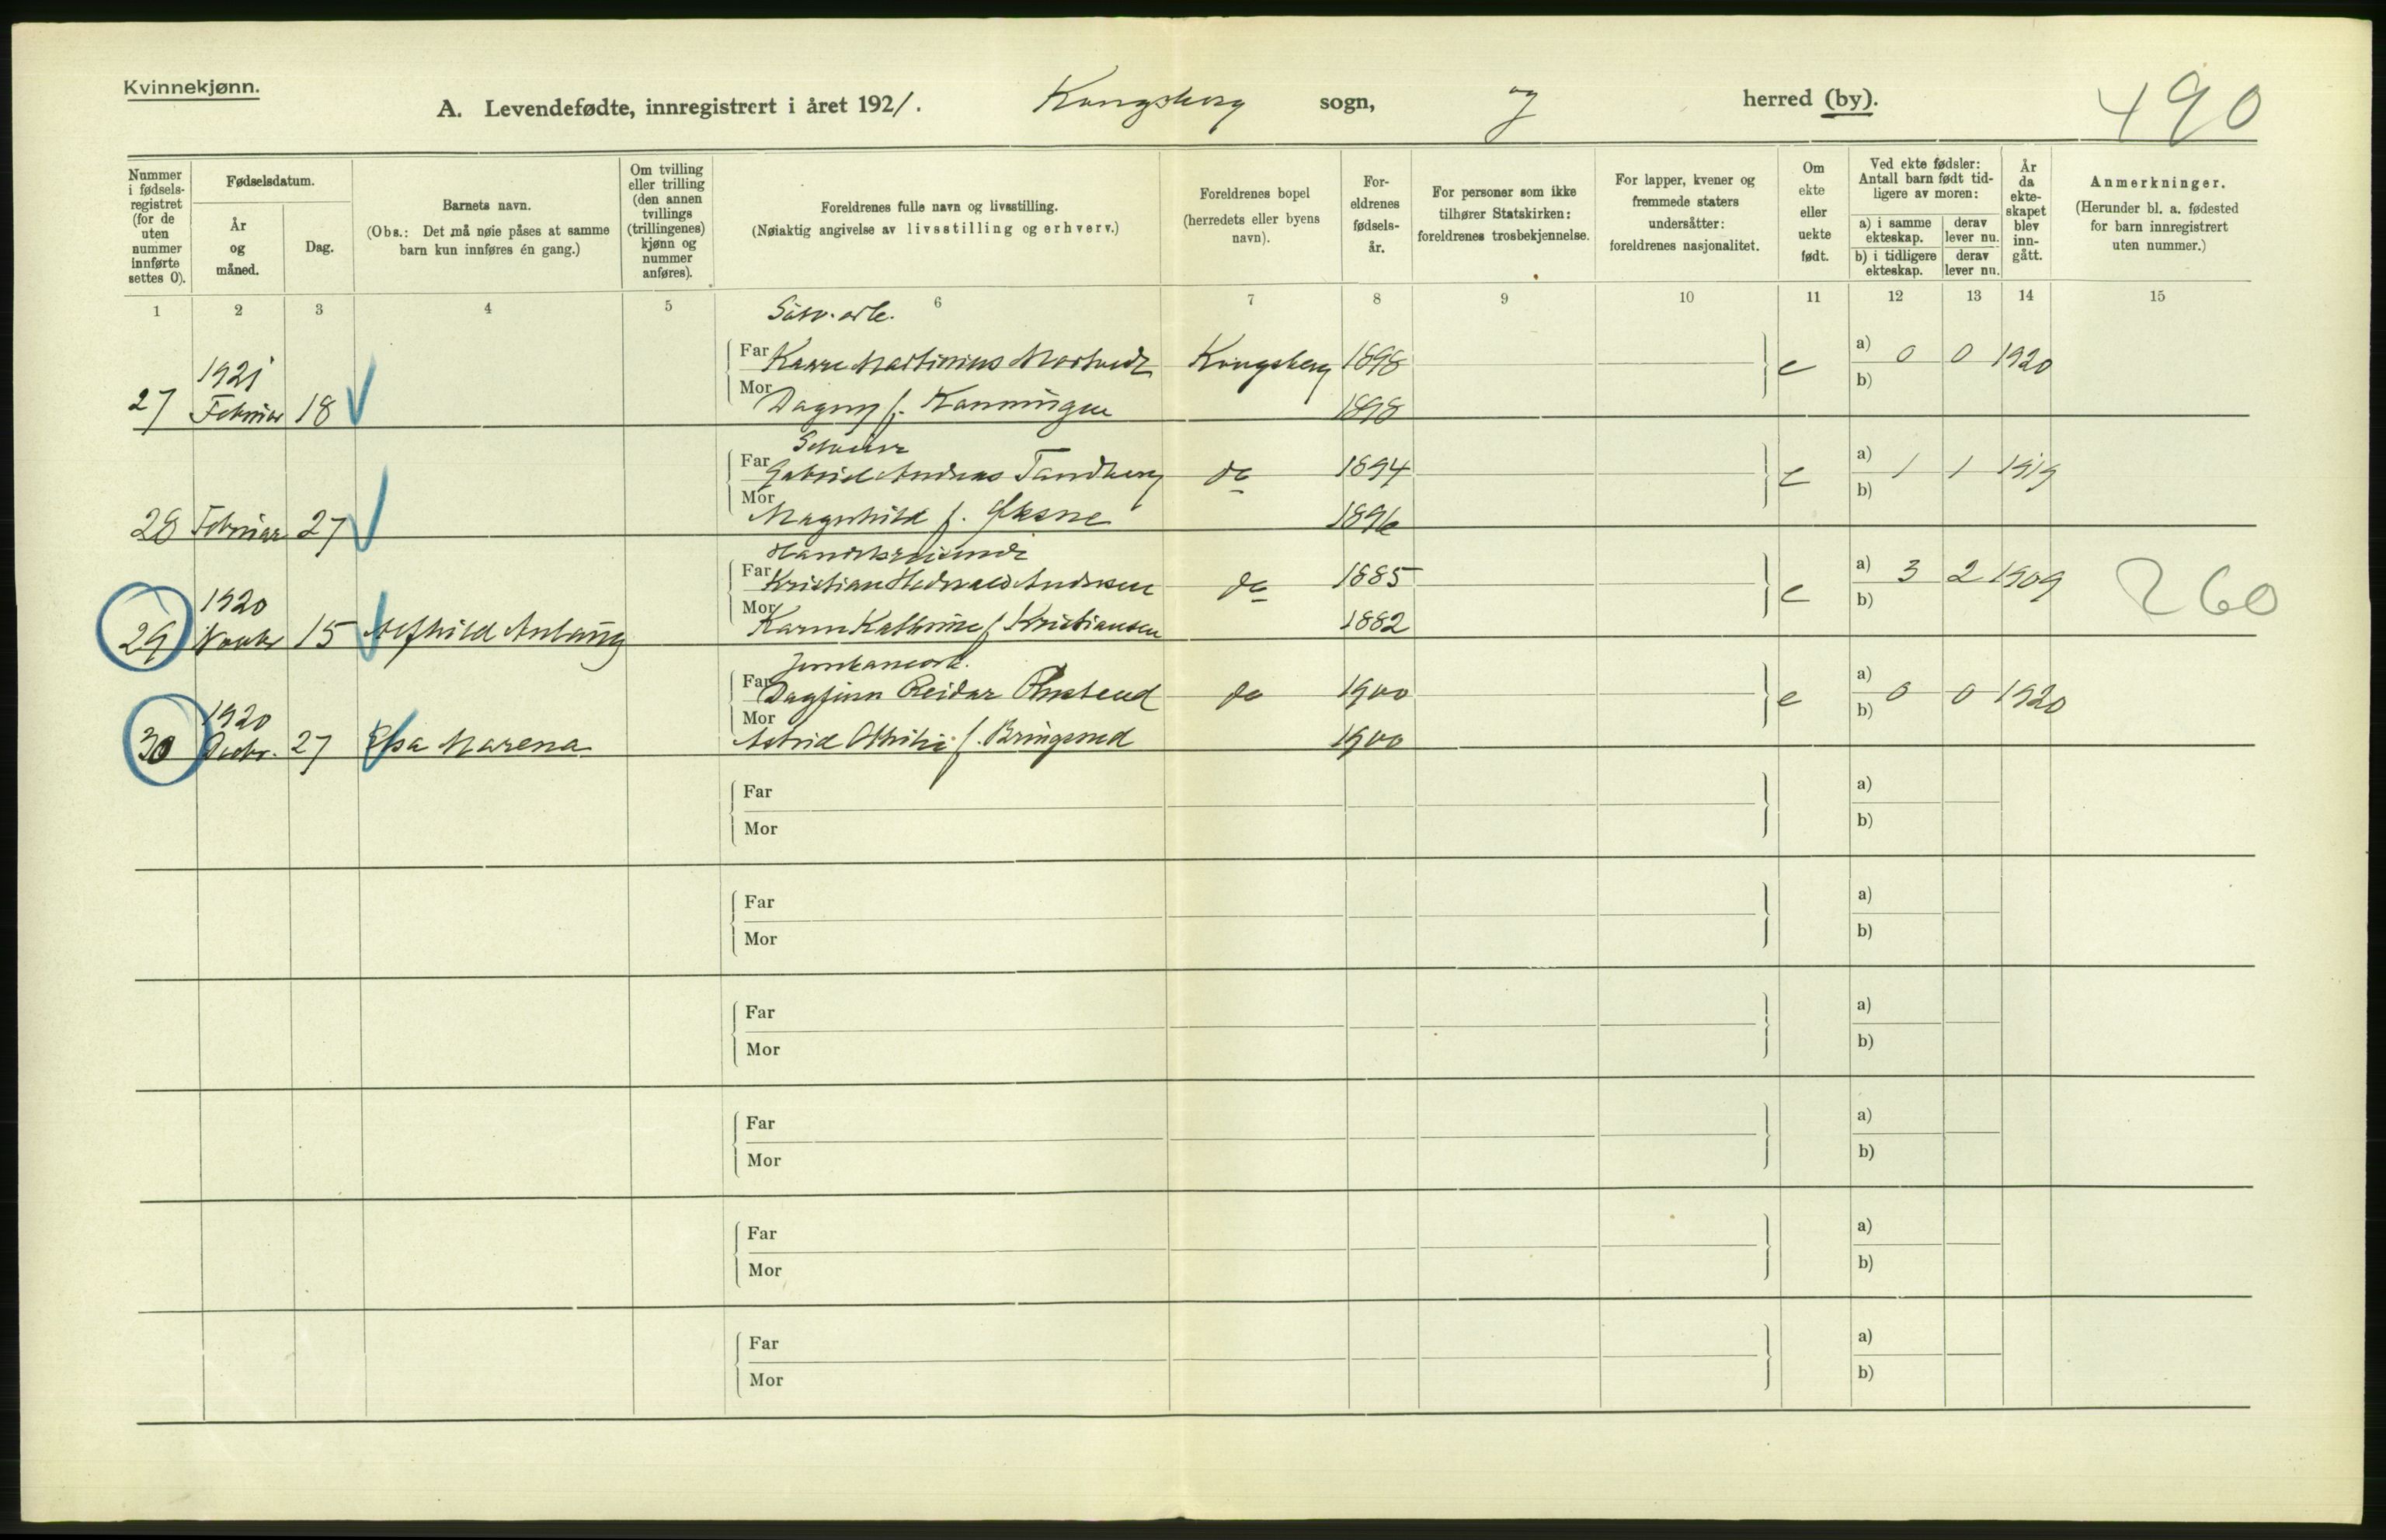 Kvinnekjønn.
A. Levendefødte, innregistrert i året 1921. Kongsberg sogn, og herred (by). 490
Nummer i fødsels-registret (for de uten nummer innførte settes 0).
Fødselsdatum.
År og måned.
Dag.
Barnets navn.
(Obs.: Det må nøie påses at samme barn kun innføres én gang.)
Om tvilling eller trilling (den annen tvillings (trillingenes) kjønn og nummer anføres).
Foreldrenes fulle navn og livsstilling.
(Nøiaktig angivelse av livsstilling og erhverv.)
Foreldrenes bopel (herredets eller byens navn).
For-eldrenes fødsels-år.
For personer som ikke tilhører Statskirken: foreldrenes trosbekjennelse.
For lapper, kvener og fremmede staters undersåtter: foreldrenes nasjonalitet.
Om ekte eller uekte født.
Ved ekte fødsler: Antall barn født tid-ligere av moren:
a) i samme ekteskap.
derav lever nu.
b) i tidligere ekteskap.
derav lever nu.
År da ekte-skapet blev inn-gått.
Anmerkninger.
(Herunder bl. a. fødested for barn innregistrert uten nummer.)
1 2 3 4 5 6 7 8 9 10 11 12 13 14 15
Far Martinius Kongsberg 1898 e a) 0 0 1920
1921
27 Februar 18 Mor Dagny f. 1898 b)
Far Gabriel Andreas Tandberg do 1894 e a) 1 1 1919
28 Februar 27 Mor Magnhild f. 1896 b)
Far Kristian Andersen do 1885 e a) 3 2 1909 260
1920
29 Novbr 15 Alfhild Mor Karen Kathrine f. Kristiansen 1882 b)
Far Dagfinn Reidar do 1900 e a) 0 0 1920
1920
30 Decbr. 27 Elsa Marena Mor Astrid f. 1900 b)
Far a)
Mor b)
Far a)
Mor b)
Far a)
Mor b)
Far a)
Mor b)
Far a)
Mor b)
Far a)
Mor b)